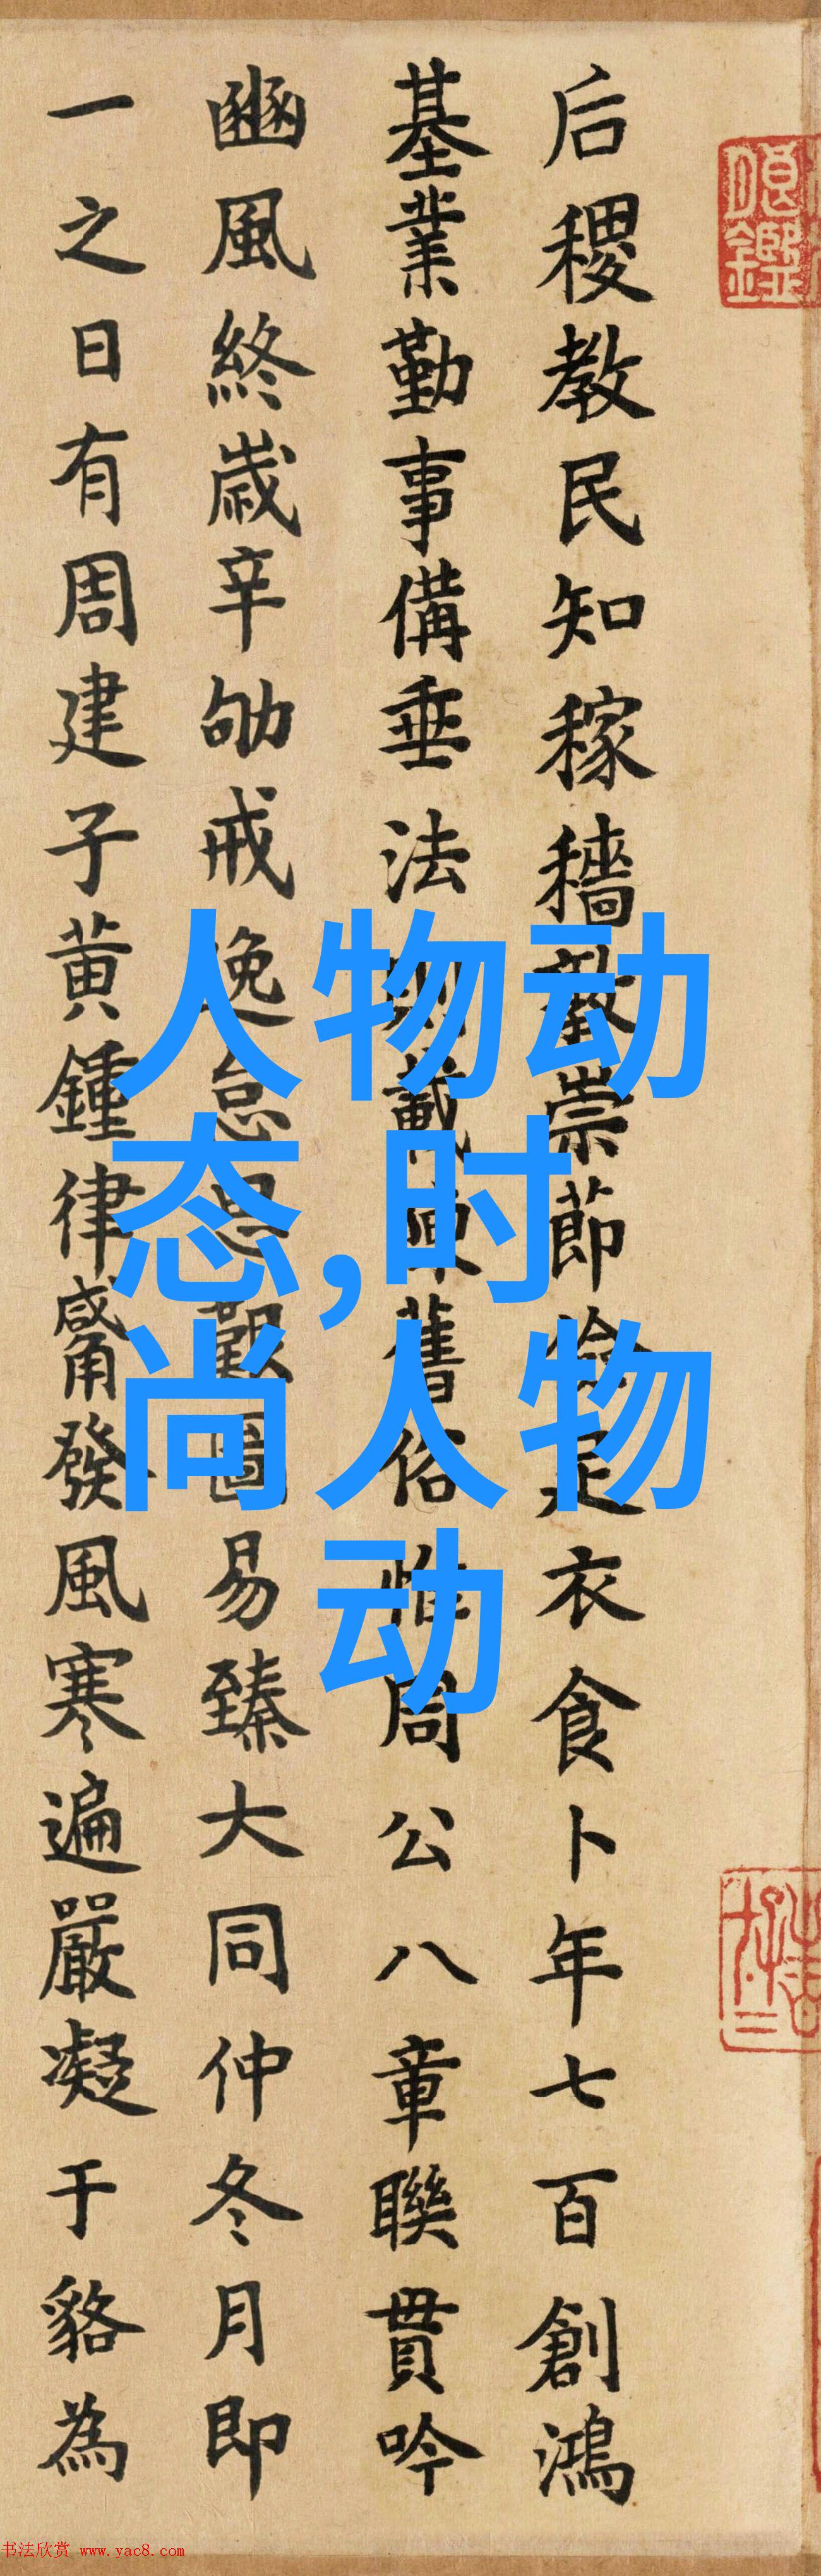 后稷教民知稼穡敦崇節儉足衣食卜年七百創鴻
基業勤事備垂法則載陳舊俗惟周公八章聯貫吟
豳風終歲辛劬戒逸怠思艱圖易臻大同仲冬月即
一之日有周建子黃鍾律觱發風寒遍嚴凝于貉為
人物动
态,时
尚人物
动
书法欣赏 www.yac8.com